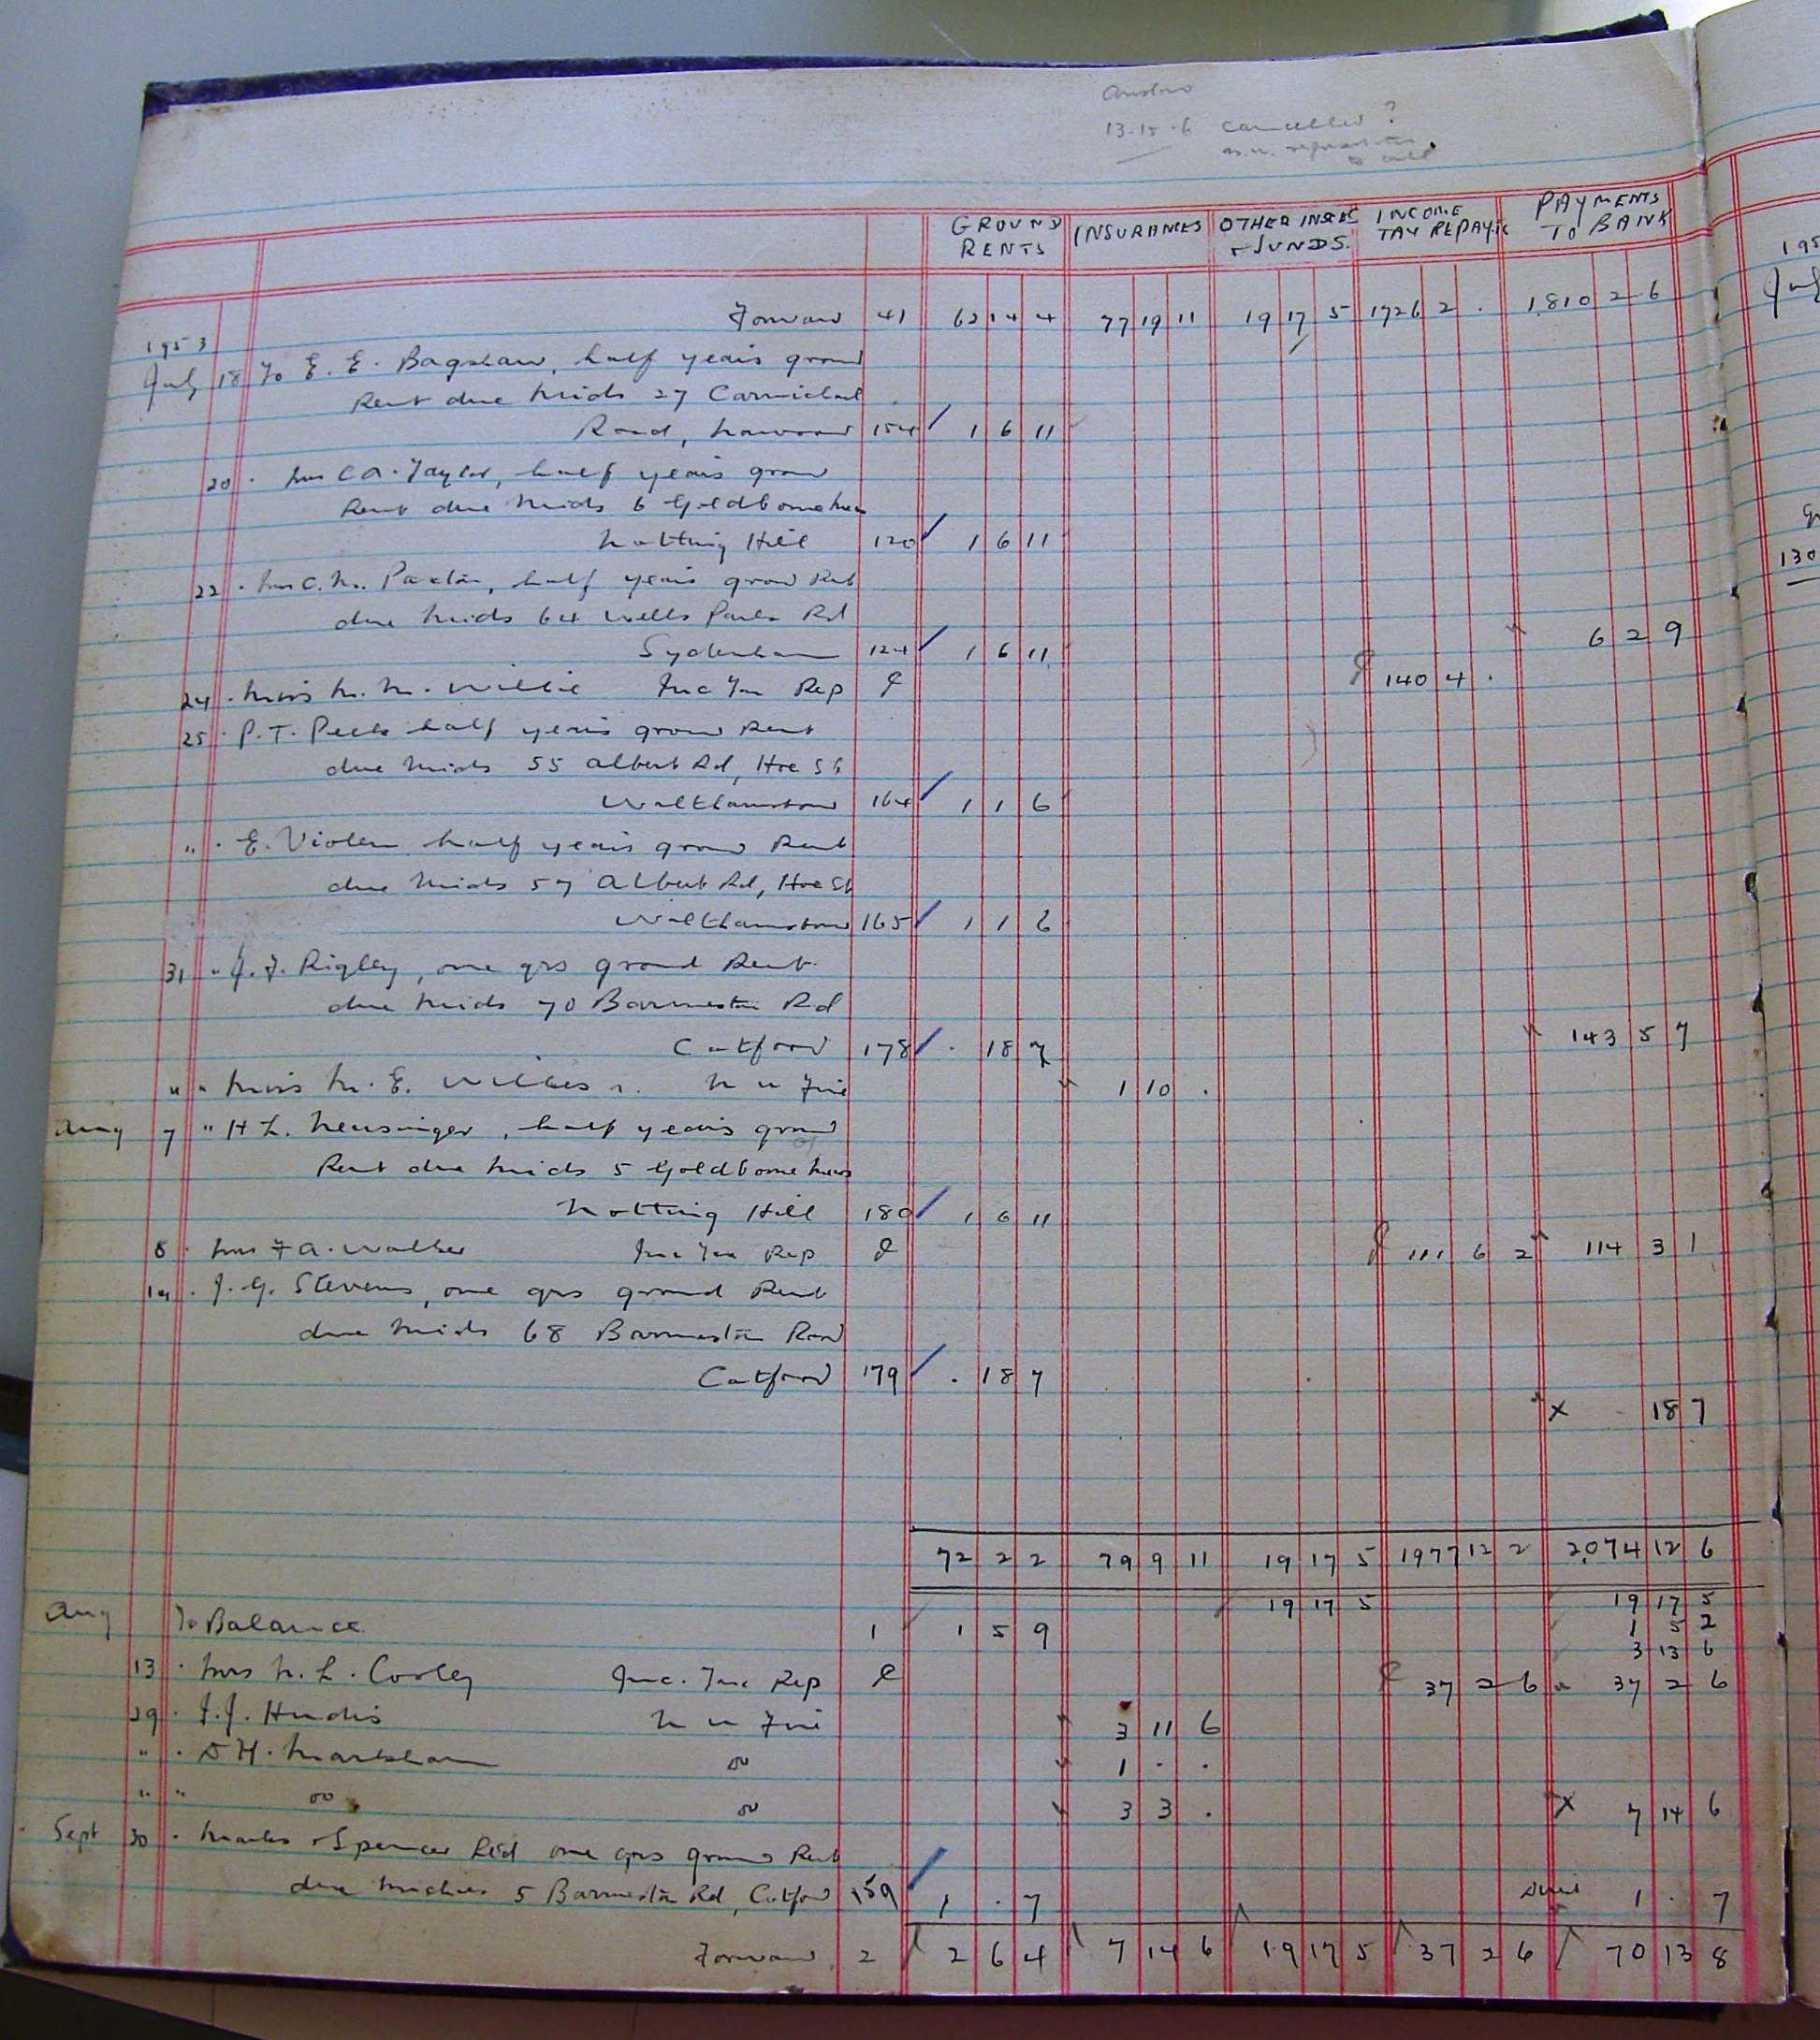 13.15.6 cancelled ?
to call
GROUND RENTS INSURANCES OTHER INSCE & FUNDS. INCOME TAX REPAY. PAYMENTS TO BANK
Forward 41 62 14 4 77 19 11 19 17 5 1726 2 . 1810 2 6
1953
July 18 To E. E. Bagshaw, half years ground
Rent due Mids 27 Carmichael
Road, Norwood 154 1 6 11
20 . Mrs C A. Taylor, half years groud
Rent due Mids 6 Goldborne Mews
Notting Hill 120 1 6 11
22 . Mrs C. M. Paxton, half years groud Rent
due Mids 64 Wells Park Rd
Sydenham 124 1 6 11 6 2 9
24 . Miss M. M. Willie Inc Tax Rep 140 4 .
25 . P. T. Peck half years groud Rent
due Mids 55 Albert Rd, Hoe St
Walthamstow 164 1 1 6
" . E. Violen half years groud Rent
due Mids 57 Albert Rd, Hoe St
Walthamstow 165 1 1 6
31 " J. F. Rigley, one qrs ground Rent
due Mids 70 Barmeston Rd
Catford 178 . 18 7 143 5 7
" " Miss M. E. N U Fire 1 10 .
Aug 7 " H L. Neusinger, half years groud
Rent due Mids 5 Goldborne Mews
Notting Hill 180 1 6 11
8 . Mrs F A. Walker Inc Tax Rep 111 6 2 114 3 1
14 . J. G. Stevens, one qrs ground Rent
due Mids 68 Barmeston Road
Catford 179 . 18 7
X - 18 7
72 2 2 79 9 11 19 17 5 1977 12 2 2074 12 6
19 17 5 19 17 5
Aug To Balance 1 1 5 9 1 5 2
3 13 6
13 . Mrs M. L. Cooley Inc. Tax Rep 37 2 6 37 2 6
29 . F. J. Hudis N U Fire 3 11 6
" . D H. Markham do 1 . .
" " do do 3 3 . X 7 14 6
Sept 30 . Marks & Spencer Ltd one qrs groud Rent
due Michas 5 Barmeston Rd, Catford 159 1 . 7 Direct 1 . 7
Forward 2 2 6 4 7 14 6 19 17 5 37 2 6 70 13 8
195
July
130